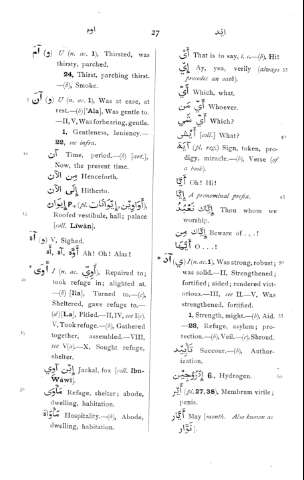 اوم
27
ايد
آم (و) U (n. ac. 1), Thirsted, was
thirsty, parched.
24, Thirst, parching thirst.
—(b), Smoke.
آن (و) U (n. ac. 1), Was at ease, at
rest.—(b)['Ala], Was gentle to.
—II, V, Was forbearing, gentle.
1, Gentleness, leniency.—
22, see infra.
آن Time, period.—(b) [art.],
Now, the present time.
مِن الآن Henceforth.
إِلَى الآن Hitherto.
Roofed vestibule, hall; palace
[coll. Līwān].
(و) V, Sighed.
Ah! Oh! Alas!
أَوَى I (n. ac. أَوِي), Repaired to;
took refuge in; alighted at.
—(b) [Ila], Turned to,—(c),
Sheltered, gave refuge to,—
(d) [La], Pitied.—II, IV, see I (c).
V, Took refuge.—(b), Gathered
together, assembled.—VIII,
see V(b).—X, Sought refuge,
shelter.
إِبْن آوَى Jackal, fox [coll. Ibn-
Wāwi].
مَأْوًى Refuge, shelter; abode,
dwelling, habitation.
Hospitality.—(b), Abode,
dwelling, habitation.
أَيْ That is to say, i. e.—(b), Hit
إِي Ay, yea, verily (always
precedes an oath).
أَيّ Which, what.
أَيّ مَن Whoever.
أَيّ شَي Which, what?
أَيْش [coll.] What?
آيَة (pl. reg.) Sign, token, pro-
digy, miracle.—(b) Verse (of
a book).
أَيَا Oh! Hi!
إِيَّا A pronominal prefix.
إِيَّاكَ نَعْبُد Thou whom we
worship.
إِيَّاكَ مِن Beware of . . . !
أَيُّهَا O . . . !
(ي) I (n. ac. 1), Was strong, robust;
was solid.—II, Strengthened;
fortified; aided; rendered vict-
orious.—III, see II.—V, Was
strengthened, fortified.
1, Strength, might.—(b), Aid.
—23, Refuge, asylum; pro-
tection.—(b), Veil.—(c), Shroud.
تَأْيِيد Succour,—(b), Author-
ization.
6, Hydrogen.
أَيْر (pl. 27, 38), Membrum virile;
penis.
أَيَّار May [month. Also known as
نُوَّار